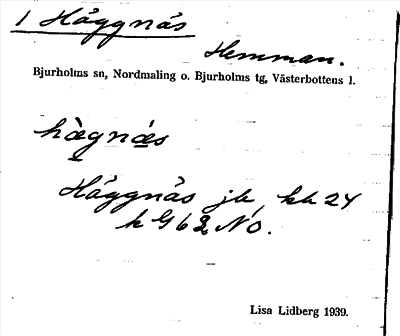 1 Häggnäs
Hemman.
Bjurholms sn, Nordmaling o. Bjurholms tg, Västerbottens l.
hàgnǽs
Häggnäs jb, kb 24
k G 62 NO.
Lisa Lidberg 1939.